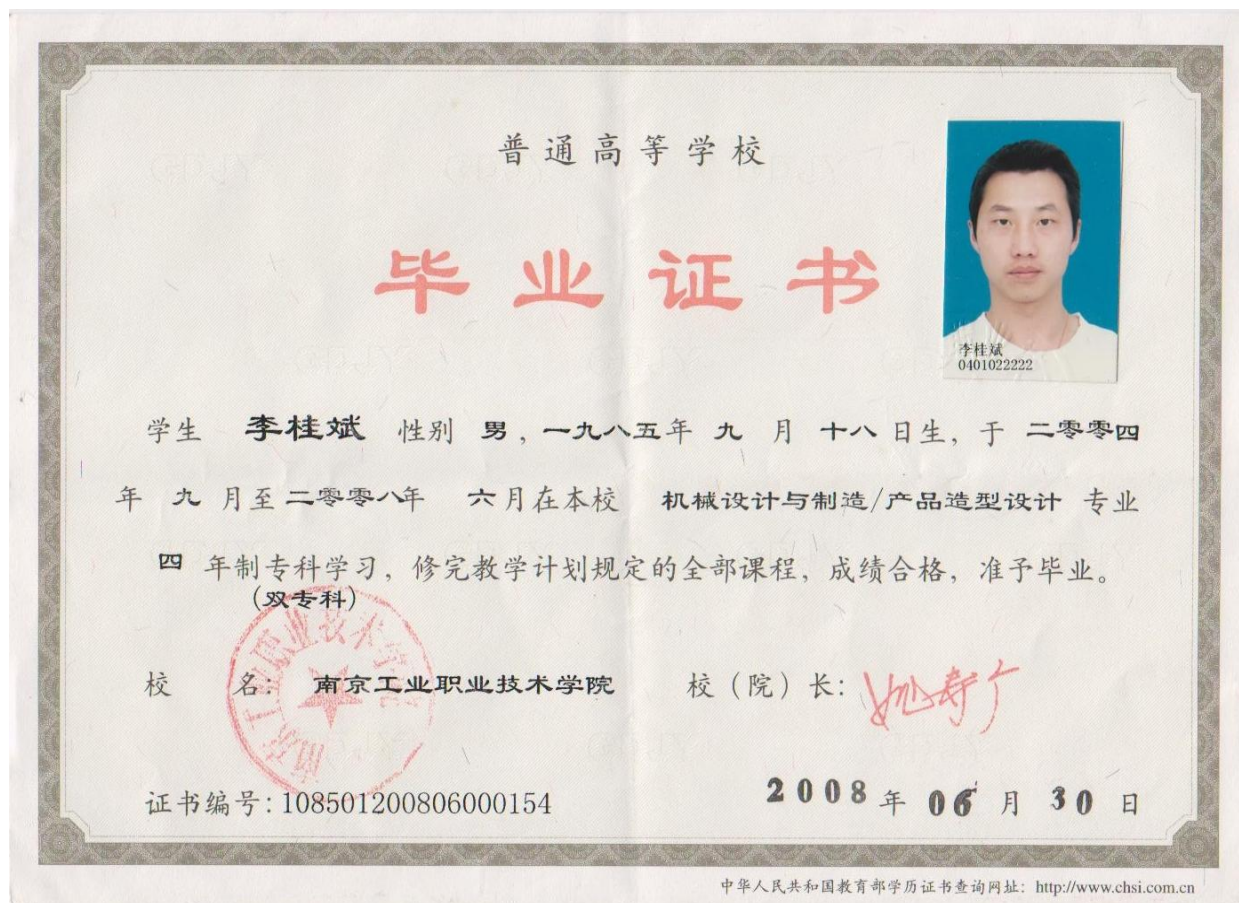 普通高等学校
毕业证书
李桂斌
0401022222
学生 李桂斌 性别 男，一九八五年 九 月 十八 日生，于 二零零四
年 九 月至 二零零八年 六月在本校 机械设计与制造/产品造型设计 专业
四 年制专科学习，修完教学计划规定的全部课程，成绩合格，准予毕业。
(双专科)
校 名：南京工业职业技术学院 校（院）长：姚寿广
南京工业职业技术学院
证书编号：108501200806000154 2008 年 06 月 30 日
中华人民共和国教育部学历证书查询网址：http://www.chsi.com.cn